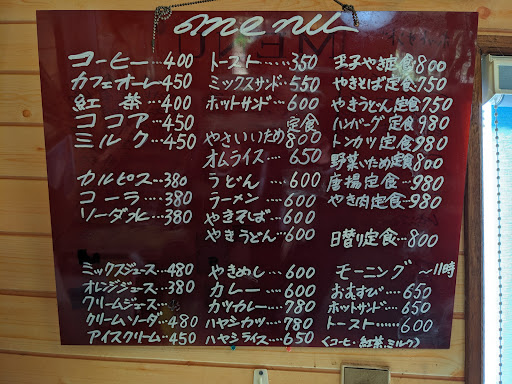 menu
コーヒー…400
カフェオーレ450
紅茶…400
ココア…450
ミルク…450
カルピス…380
コーラ…380
ソーダ水…380
ミックスジュース…480
オレンジジュース…380
クリームジュース…
クリームソーダ…480
アイスクリーム…450
トースト…350
ミックスサンド…550
ホットサンド…600
やさいいため定食800
オムライス…650
うどん…600
ラーメン…600
やきそば…600
やきうどん…600
やきめし…600
カレー…600
カツカレー…780
ハヤシカツ…780
ハヤシライス…650
玉子やき定食800
やきそば定食750
やきうどん定食750
ハンバーグ定食980
トンカツ定食…980
野菜いため定食800
唐揚定食…980
やき肉定食…980
日替り定食…800
モーニング ～11時
おむすび…650
ホットサンド…650
トースト…600
(コーヒ・紅茶、ミルク)